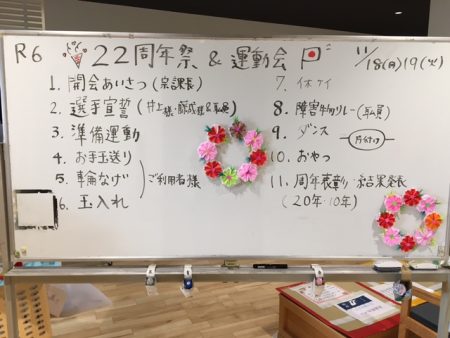 R6 22周年祭 & 運動会 11/18(月)19(火)
1. 開会あいさつ(宗課長)
2. 選手宣誓
3. 準備運動
4. お手玉送り
5. 輪なげ
6. 玉入れ
ご利用者様
7. 休ケイ
8. 障害物リレー(職員)
9. ダンス
10. おやつ
11. 周年表彰・結果発表
(20年・10年)